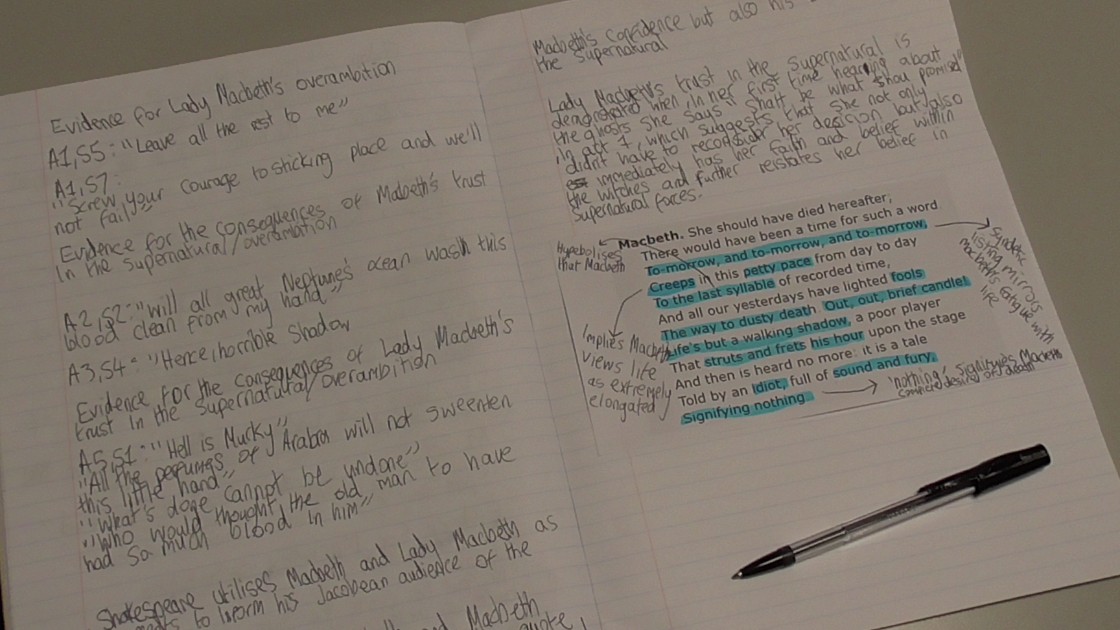 Evidence for Lady Macbeth's overambition
A1,S5: "Leave all the rest to me"
A1,S7:
"Screw your courage to sticking place and we'll
not fail"
Evidence for the consequences of Macbeth's trust
In the supernatural/overambition
A2,S2: "will all great Neptune's ocean wash this
blood clean from my hand"
A3,S4: "Hence horrible Shadow
Evidence for the consequences of Lady Macbeth's
trust in the Supernatural/overambition
A5,S1: "Hell is Murky"
"All the perfumes of Arabia will not sweeten
this little hand"
"What's done cannot be undone"
"Who would thought the old man to have
had so much blood in him"
Shakespeare utilises Macbeth and Lady Macbeth as
to inform his Jacobean audience of the
and Macbeth
Macbeth's Confidence but also his
the supernatural
Lady Macbeth's trust in the Supernatural is
when, in her first time hearing about
the ghosts she says "shalt be what thou promised"
in act 1, which suggests that she not only
didn't have to reconsider her decision but also
immediately has her faith and belief within
the witches and further reistates her belief in
supernatural forces.
Hyperbolises
that Macbeth
Macbeth. She should have died hereafter;
There would have been a time for such a word
To-morrow, and to-morrow, and to-morrow,
Creeps in this petty pace from day to day
To the last syllable of recorded time,
And all our yesterdays have lighted fools
The way to dusty death. Out, out, brief candle!
Life's but a walking shadow, a poor player
That struts and frets his hour upon the stage
And then is heard no more: it is a tale
Told by an idiot, full of sound and fury,
Signifying nothing.
Implies Macbeth
views life
as extremely
elongated
listing mirrors
Macbeth's fatigue with
life
'nothing' signifies Macbeth's
desire of death